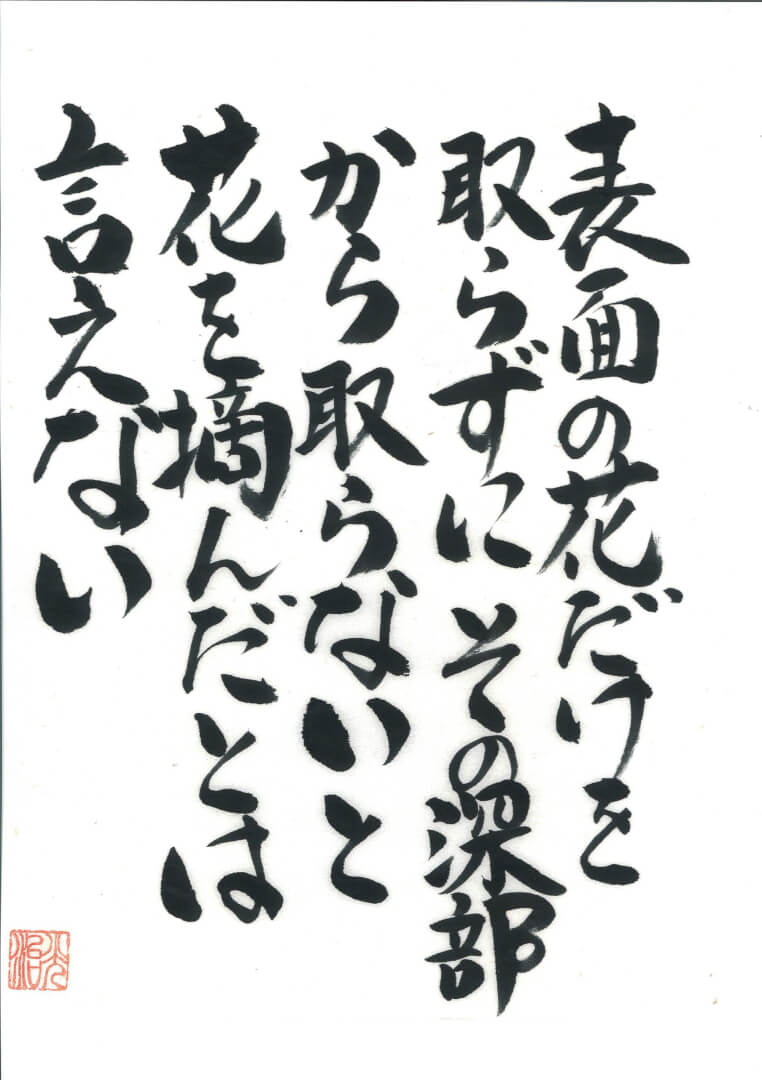 表面の花だけを
取らずに その深部
から取らないと
花を摘んだとは
言えない